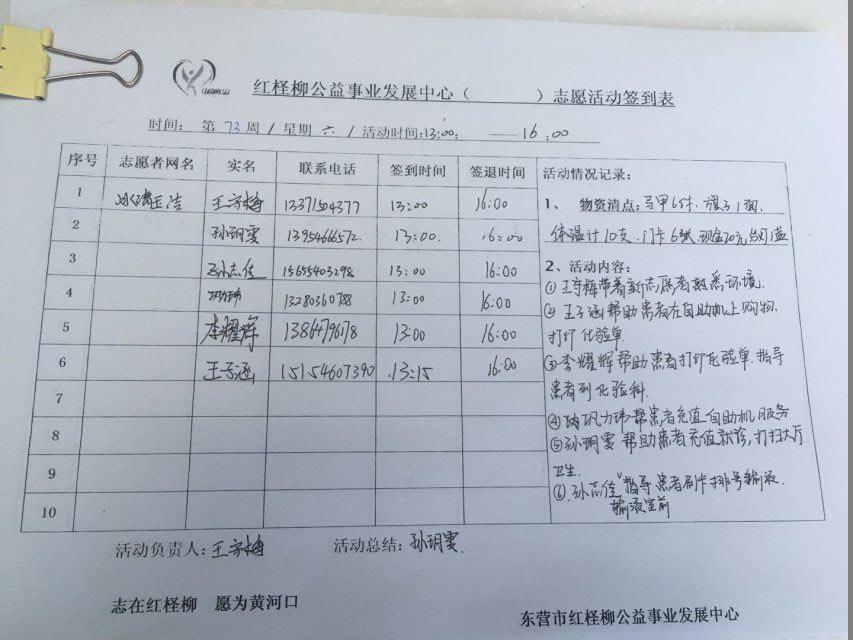 红柽柳公益事业发展中心（ ）志愿活动签到表
时间： 第 73 周 / 星期 六 / 活动时间:13:00: —— 16:00
序号 志愿者网名 实名 联系电话 签到时间 签退时间 活动情况记录：
1 王守梅 13371504377 13:00 16:00
2 孙玥雯 13954666572. 13:00. 16:00
3 孙志佳 15655403298 13:00 16:00
4 13280360788 13:00 16:00
5 李耀辉 1386479678 13:00 16:00
6 王子涵 15154607390 13:15 16:00
7
8
9
10
1、 物资清点：马甲6件.
体温计10支.门卡6张.现金20元
2、活动内容：
①王守梅带着新志愿者熟悉环境.
②王子涵帮助患者在自助机上购物.
打印化验单.
③李耀辉帮助患者打印化验单.指导
患者到化验科.
④ 帮患者充值.自助机服务
⑤孙玥雯帮助患者充值就诊,打扫大厅
卫生.
⑥.孙志佳指导患者刷卡排号输液.
输液室前
活动负责人：王守梅 活动总结：孙玥雯.
志在红柽柳 愿为黄河口
东营市红柽柳公益事业发展中心